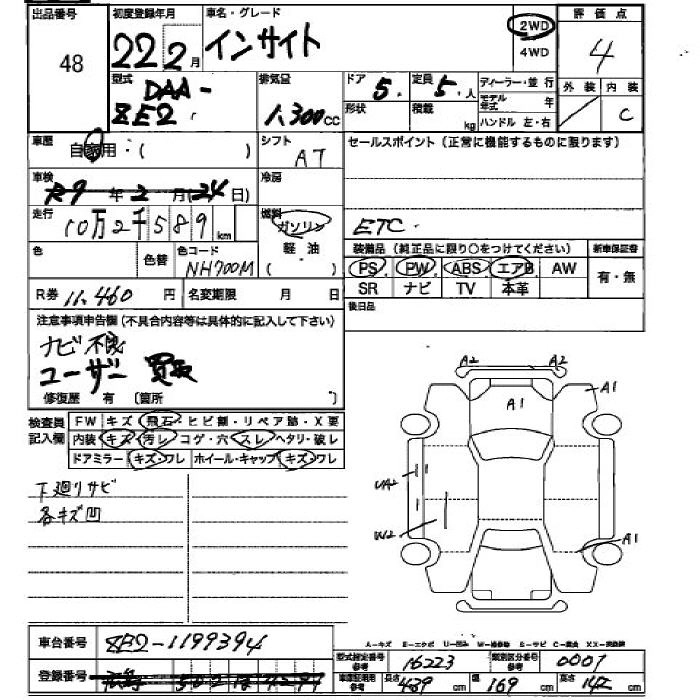 出品番号 初度登録年月 車名・グレード 2WD 評価点
48 22年2月 インサイト 4WD 4
型式 DAA- 排気量 ドア 定員 ディーラー・並行 外装 内装
ZE2 1,300cc 5 5人 モデル年式 年 C
形状 積載 kg ハンドル 左・右
車歴 自家用:( ) シフト AT セールスポイント(正常に機能するものに限ります)
車検 R7年2月(24日) 冷房
走行 10万2千589km 燃料 ガソリン ETC
色 色替 色コード NH700M 軽油 ( ) 装備品(純正品に限り○をつけてください) 新車保証書
PS PW ABS エアB AW 有・無
R券 11,460円 名変期限 月 日 SR ナビ TV 本革
注意事項申告欄(不具合内容等は具体的に記入して下さい) 後日品
ナビ不良
ユーザー買取
修復歴 有 〔箇所 〕
検査員記入欄 FW キズ・飛石・ヒビ割・リペア跡・X要
内装 キズ・汚レ・コゲ・穴・スレ・ヘタリ・破レ
ドアミラー キズ・ワレ ホイール・キャップ キズ・ワレ
A2 A2
A1 A1
UA2
W2 A1
下廻リサビ
各キズ凹
車台番号 ZE2-1199394
A-キズ E-エクボ U-凹み
型式指定番号 参考 16223 類別区分番号 参考 0007
登録番号
車庫証明用 参考 長さ 439cm 幅 169cm 高さ 142cm